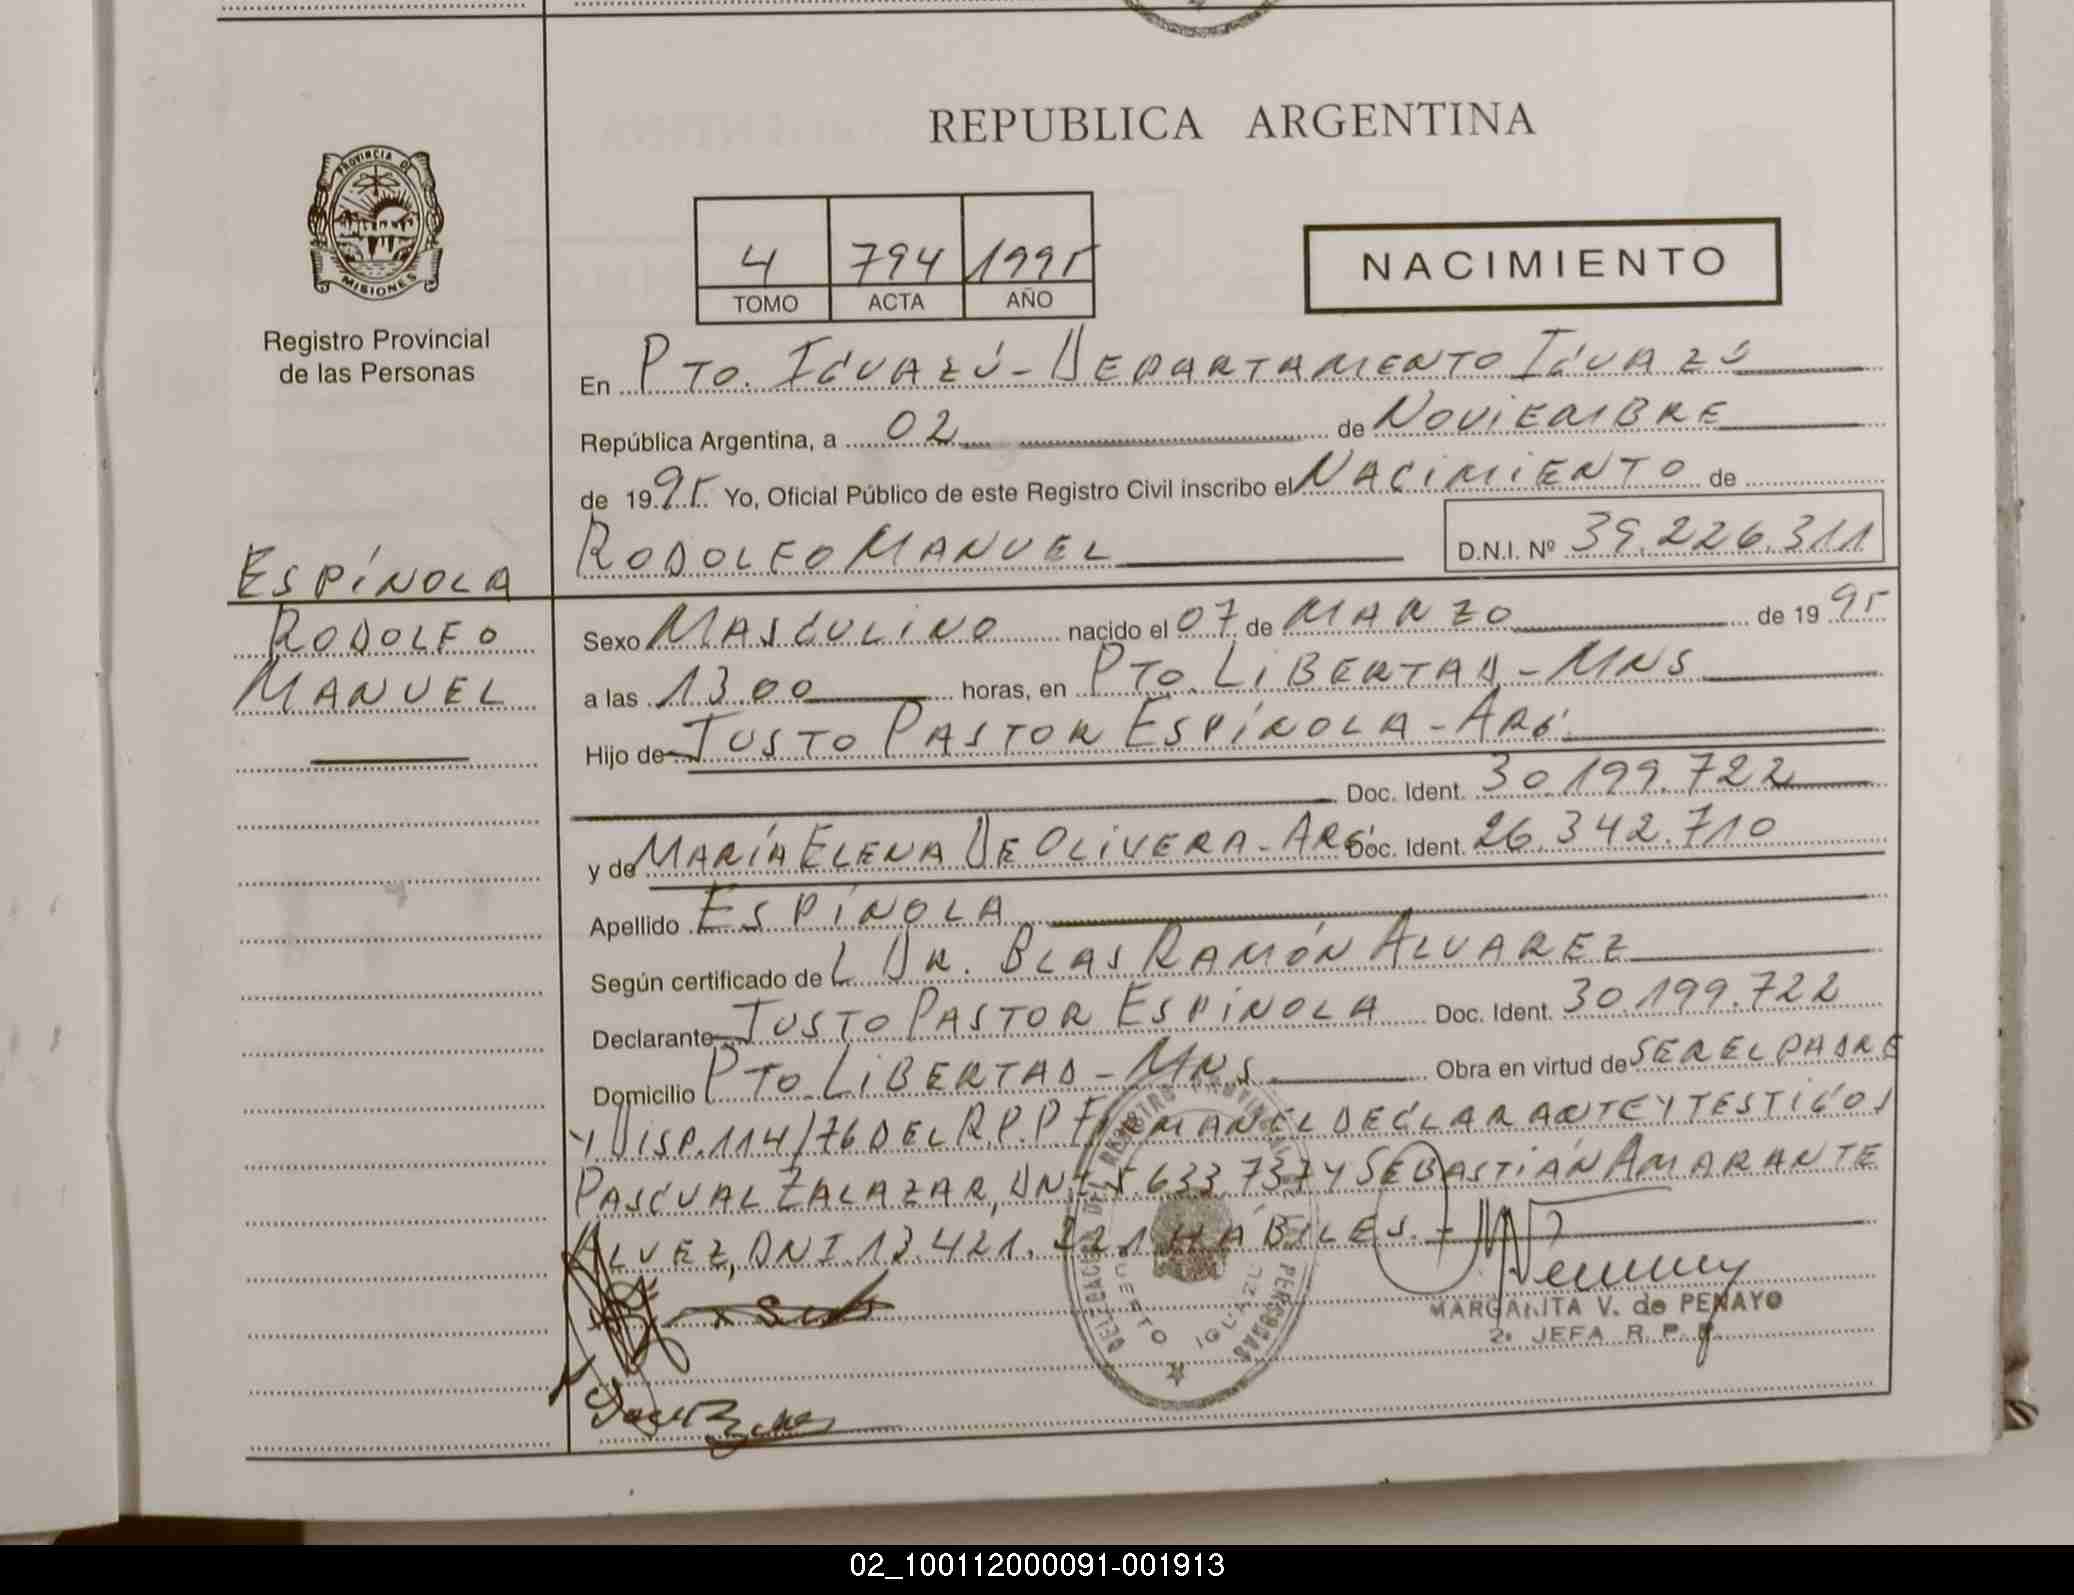 REPUBLICA ARGENTINA
PROVINCIA DE
MISIONES
Registro Provincial
de las Personas
4 794 1995
TOMO ACTA AÑO
NACIMIENTO
En PTO. IGUAZÚ - DEPARTAMENTO IGUAZÚ
República Argentina, a 02 de NOVIEMBRE
de 1995 Yo, Oficial Público de este Registro Civil inscribo el NACIMIENTO de
RODOLFO MANUEL D.N.I. Nº 39.226.311
ESPÍNOLA
RODOLFO
MANUEL
Sexo MASCULINO nacido el 07 de MARZO de 1995
a las 13.00 horas, en PTO. LIBERTAD - MNS
Hijo de JUSTO PASTOR ESPÍNOLA - ARG.
Doc. Ident. 30.199.722
y de MARÍA ELENA DE OLIVERA - ARG. Doc. Ident. 26.342.710
Apellido ESPÍNOLA
Según certificado de L DR. BLAS RAMÓN ALVAREZ
Declarante JUSTO PASTOR ESPÍNOLA Doc. Ident. 30.199.722
Domicilio PTO. LIBERTAD - MNS Obra en virtud de SER EL PADRE
Y DISP. 114/76 DEL R.P.P FIRMAN EL DECLARANTE Y TESTIGOS
PASCUAL ZALAZAR, DNI 5.633.737 Y SEBASTIÁN AMARANTE
ALVEZ, DNI 13.421.321 HÁBILES. -
DELEGACION DEL REGISTRO PROVINCIAL PERSONAS
PUERTO IGUAZU
MARGARITA V. de PENAYO
2ª JEFA R. P. P.
02_100112000091-001913